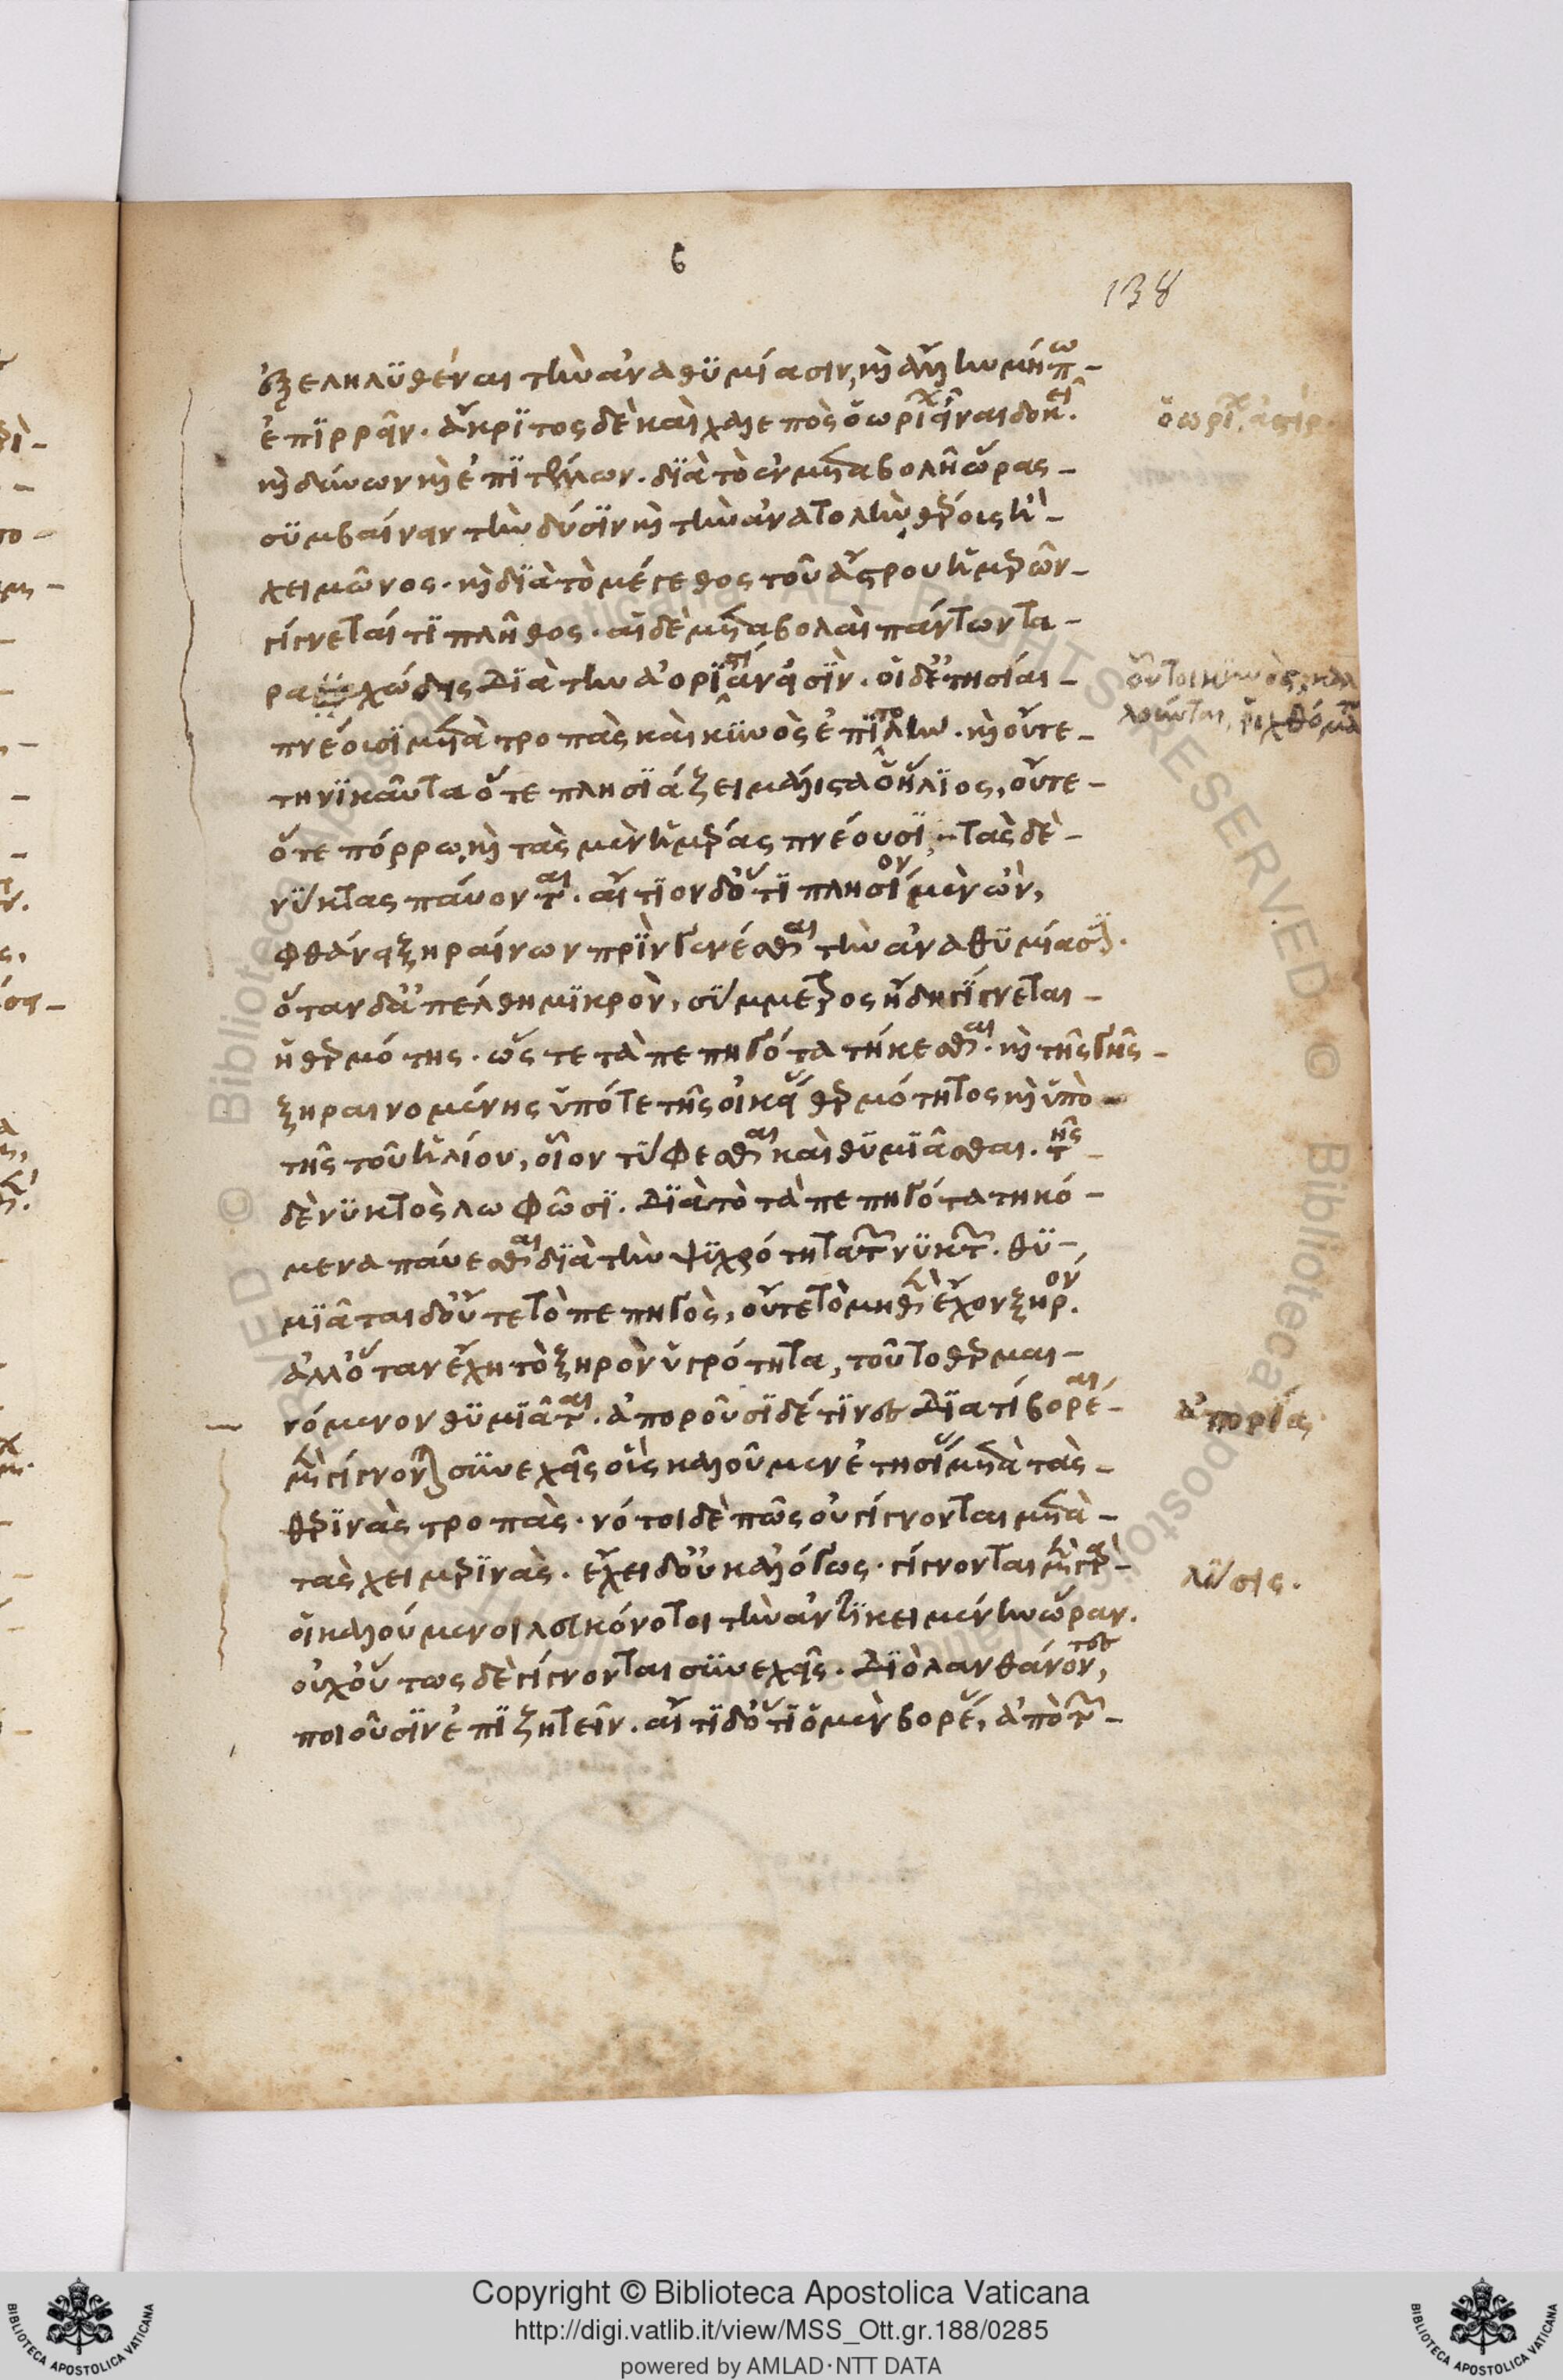 138
ἐξεληλυθέναι τὴν ἀναθυμίασιν, καὶ ἄλλην μήπω
ἐπιρρεῖν. ἄκριτος δὲ καὶ χαλεπὸς ὁ ὠρίων εἶναι δοκεῖ.
καὶ δύνων καὶ ἐπιτέλλων. διὰ τὸ ἐν μεταβολῇ ὥρας
συμβαίνειν τὴν δύσιν καὶ τὴν ἀνατολὴν, θέρους ἢ
χειμῶνος. καὶ διὰ τὸ μέγεθος τοῦ ἄστρου ἡμερῶν
γίγνεταί τι πλῆθος. αἱ δὲ μεταβολαὶ πάντων τα
ραχώδεις διὰ τὴν ἀοριστίαν εἰσίν. οἱ δ' ἐτησίαι
πνέουσι μετὰ τροπὰς καὶ κυνὸς ἐπιτολὴν. καὶ οὔτε
τηνικαῦτα ὅτε πλησιάζει μάλιστα ὁ ἥλιος, οὔτε
ὅτε πόρρω, καὶ τὰς μὲν ἡμέρας πνέουσι, τὰς δὲ
νύκτας παύονται. αἴτιον δ' ὅτι πλησίον μὲν ὢν,
φθάνει ξηραίνων πρὶν γενέσθαι τὴν ἀναθυμίασιν.
ὅταν δ' ἀπέλθῃ μικρὸν, σύμμετρος ἤδη γίγνεται
ἡ θερμότης. ὥστε τὰ πεπηγότα τήκεσθαι. καὶ τῆς γῆς
ξηραινομένης ὑπό τε τῆς οἰκείας θερμότητος καὶ ὑπὸ
τῆς τοῦ ἡλίου, οἷον τύφεσθαι καὶ θυμιᾶσθαι. τῆς
δὲ νυκτὸς λωφῶσι. διὰ τὸ τὰ πεπηγότα τηκό
μενα παύεσθαι διὰ τὴν ψυχρότητα τῶν νυκτῶν. θυ
μιᾶται δ' οὔτε τὸ πεπηγὸς, οὔτε τὸ μηδὲν ἔχον ξηρόν.
ἀλλ' ὅταν ἔχῃ τὸ ξηρὸν ὑγρότητα, τοῦτο θερμαι
νόμενον θυμιᾶται. ἀποροῦσι δέ τινες διὰ τί βορέαι
μὲν γίγνονται συνεχεῖς οὓς καλοῦμεν ἐτησίας μετὰ τὰς
θερινὰς τροπὰς. νότοι δὲ πῶς οὐ γίγνονται μετὰ
τὰς χειμερινὰς. ἔχει δ' οὐκ ἀλόγως. γίγνονται μὲν γὰρ
οἱ καλούμενοι λευκόνοτοι τὴν ἀντικειμένην ὥραν.
οὐχ οὕτως δὲ γίγνονται συνεχεῖς. διὸ λανθάνοντες,
ποιοῦσιν ἐπιζητεῖν. αἴτιον δ' ὅτι ὁ μὲν βορέας, ἀπὸ τῶν
ἀπορία
λύσις.
Copyright © Biblioteca Apostolica Vaticana
http://digi.vatlib.it/view/MSS_Ott.gr.188/0285
powered by AMLAD·NTT DATA
BIBLIOTECA APOSTOLICA VATICANA
BIBLIOTECA APOSTOLICA VATICANA